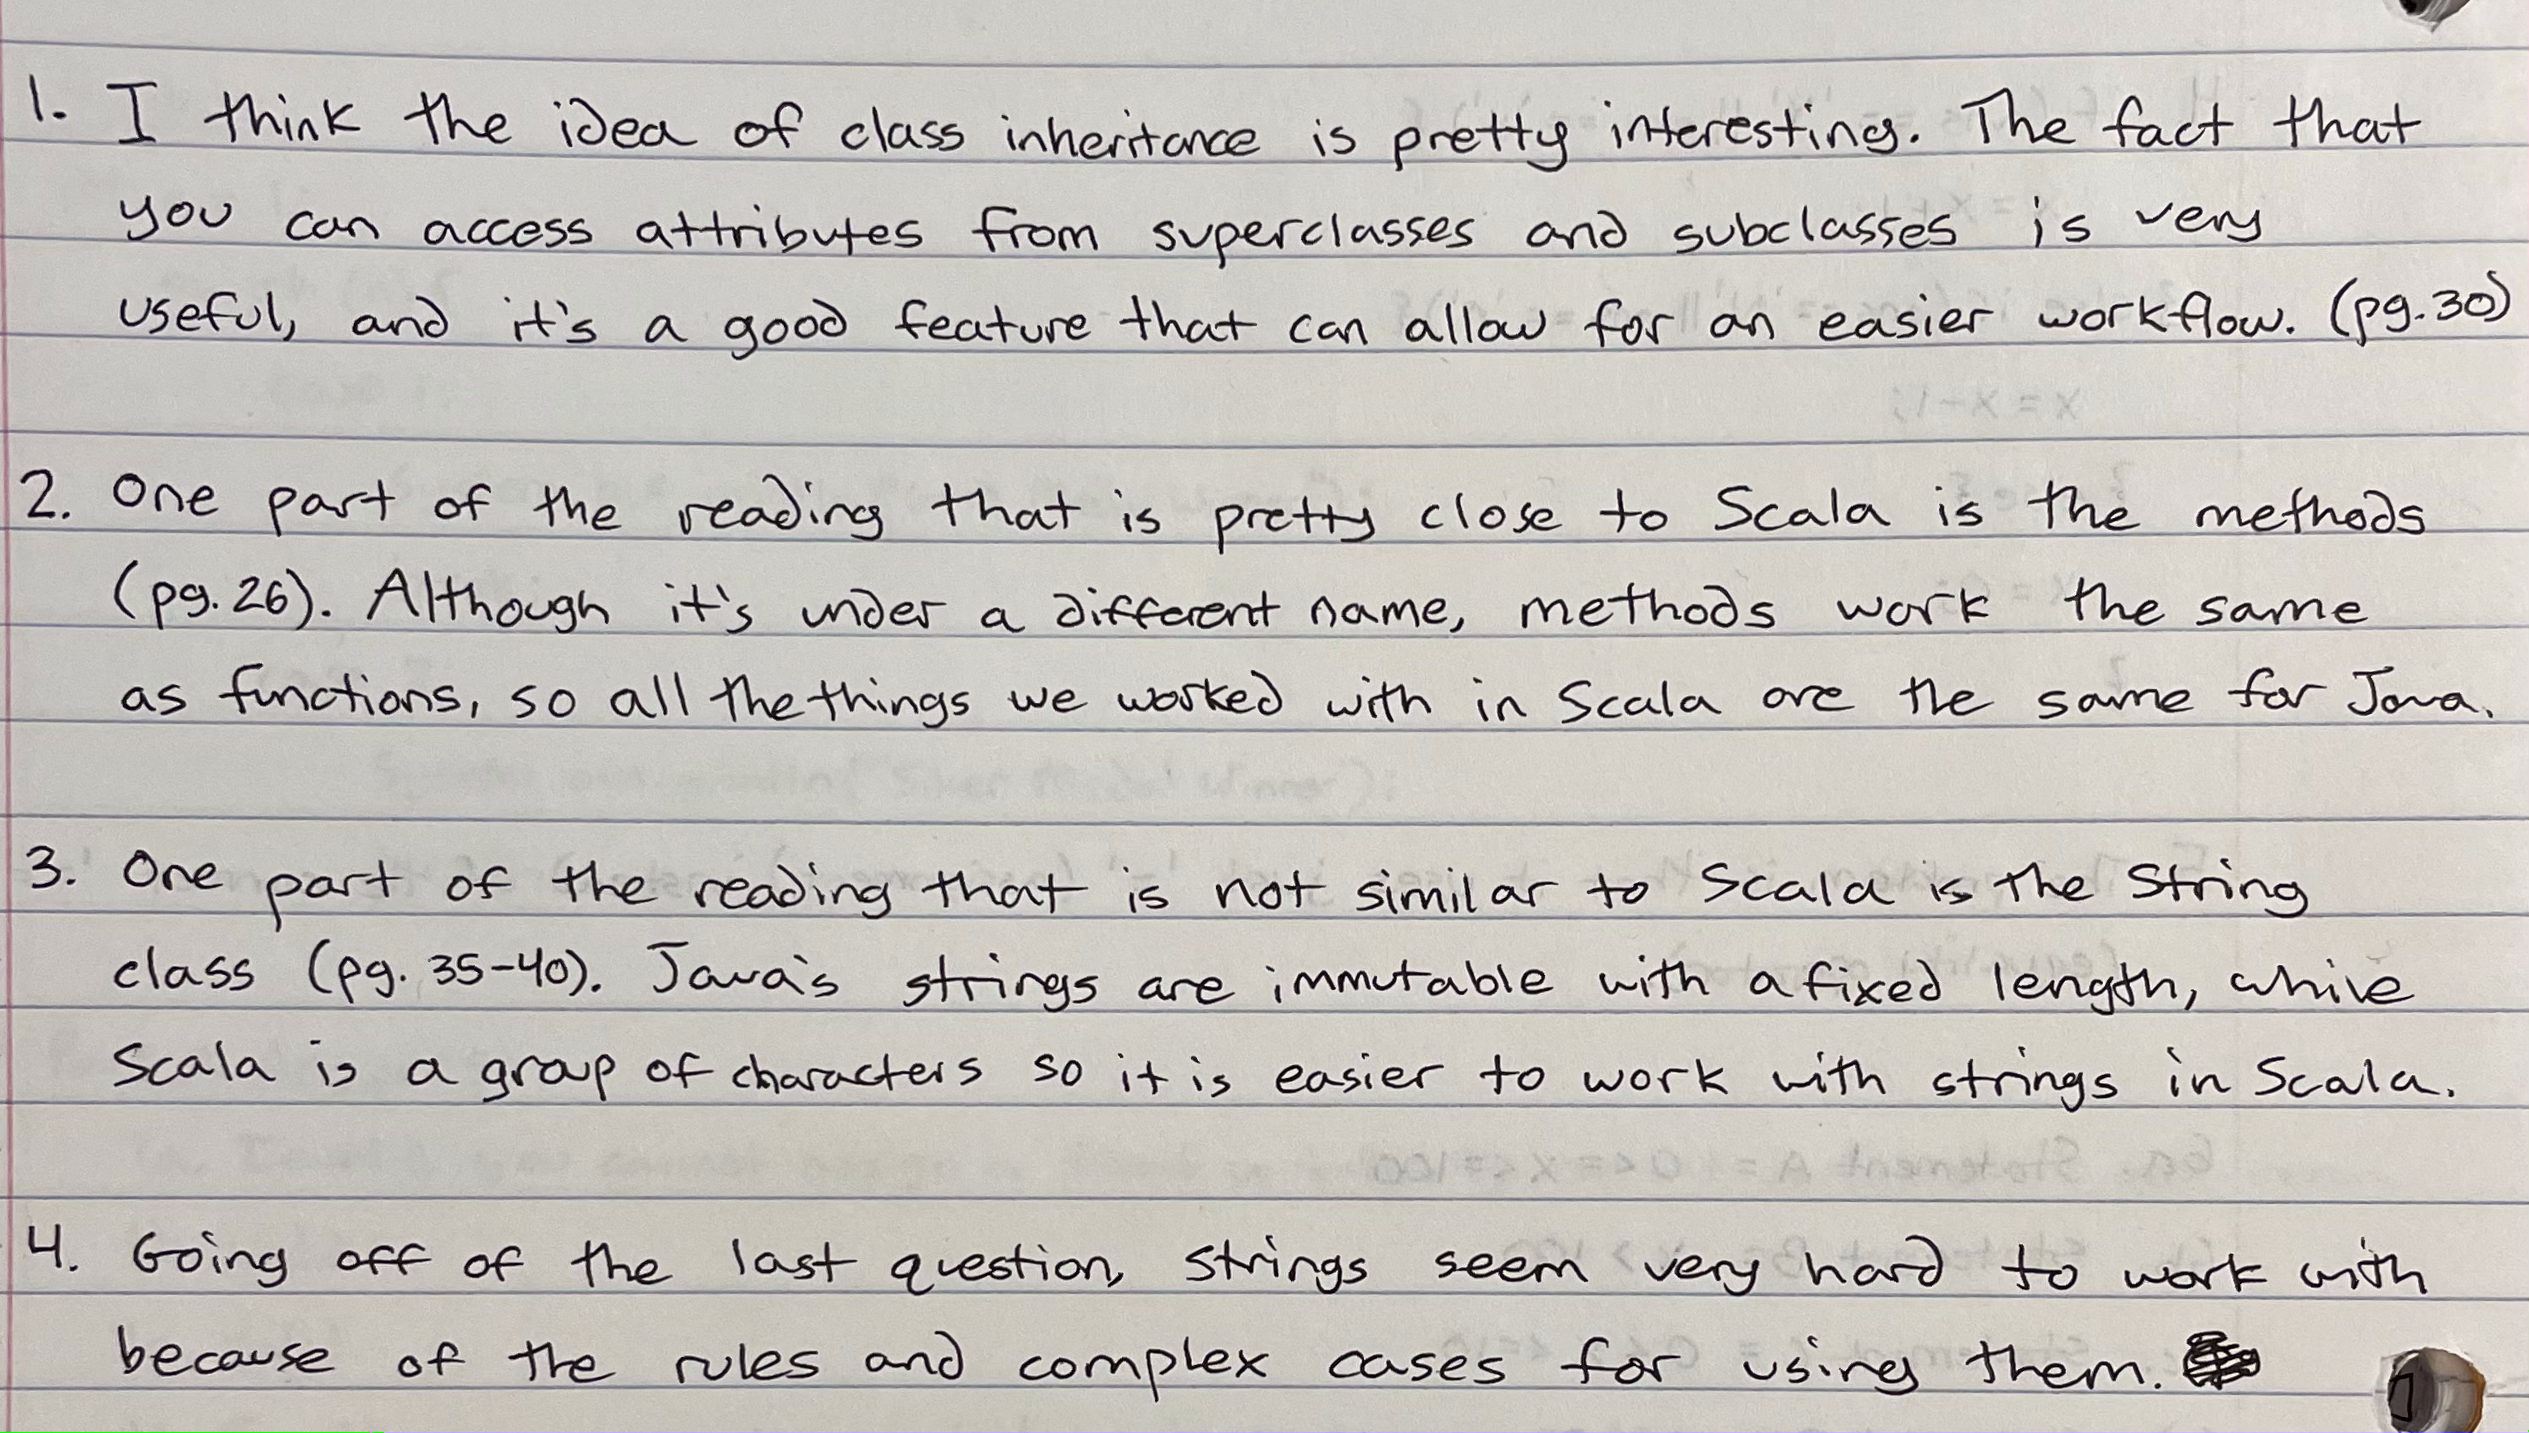 1. I think the idea of class inheritance is pretty interesting. The fact that
you can access attributes from superclasses and subclasses is very
useful, and it's a good feature that can allow for an easier workflow. (pg.30)
2. One part of the reading that is pretty close to Scala is the methods
(pg.26). Although it's under a different name, methods work the same
as functions, so all the things we worked with in Scala are the same for Java.
3. One part of the reading that is not similar to Scala is the String
class (pg. 35-40). Java's strings are immutable with a fixed length, while
Scala is a group of characters so it is easier to work with strings in Scala.
4. Going off of the last question, strings seem very hard to work with
because of the rules and complex cases for using them.